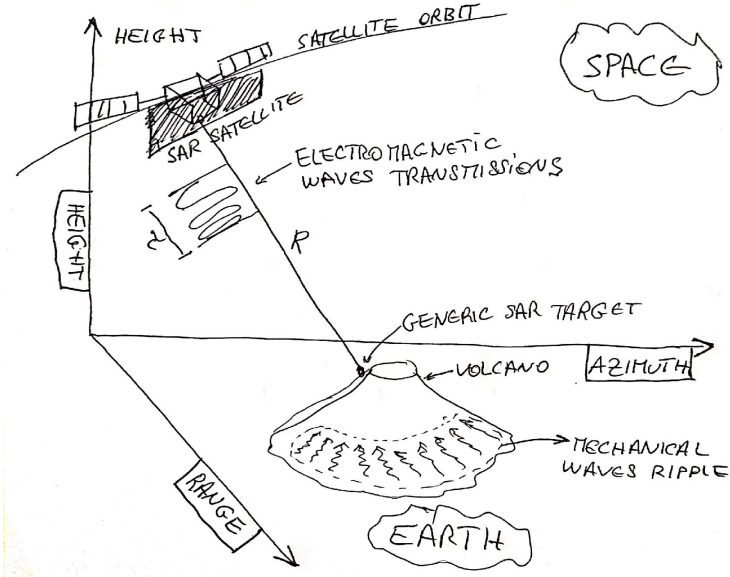 HEIGHT
SATELLITE ORBIT
SPACE
SAR SATELLITE
ELECTROMAGNETIC
WAVES TRANSMISSIONS
HEIGHT
R
GENERIC SAR TARGET
VOLCANO
AZIMUTH
MECHANICAL
WAVES RIPPLE
RANGE
EARTH